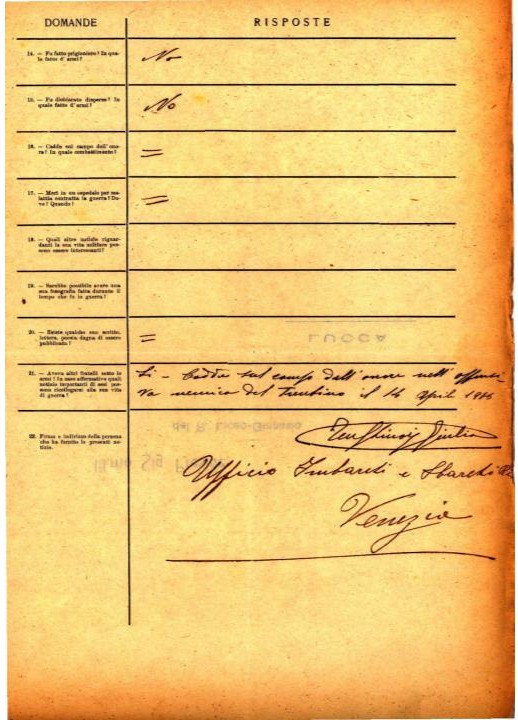 DOMANDE
RISPOSTE
14. — Fu fatto prigioniero? In qua-
le fatto d'armi?
No
15. — Fu dichiarato disperso? In
quale fatto d'armi?
No
16. — Cadde sul campo dell'ono-
re? In quale combattimento?
=
17. — Morì in un ospedale per ma-
lattia contratta in guerra? Do-
ve? Quando?
=
18. — Quali altre notizie riguar-
danti la sua vita militare pos-
sono essere interessanti?
19. — Sarebbe possibile avere una
sua fotografia fatta durante il
tempo che fu in guerra?
20. — Esiste qualche suo scritto,
lettera, poesia degna di essere
pubblicata?
=
LUCCA
21. — Aveva altri fratelli sotto le
armi? In caso affermativo quali
notizie importanti di essi pos-
sono ricollegarsi alla sua vita
di guerra?
Si - Cadde sul campo dell'onore nell'offensi
va nemica del Trentino il 14 April 1916
22. Firma e indirizzo della persona
che ha fornito le presenti no-
tizie.
Giulio
del R. Liceo-Ginnasio
Ill.mo Sig.
Ufficio Imbarchi e Sbarchi
Venezia